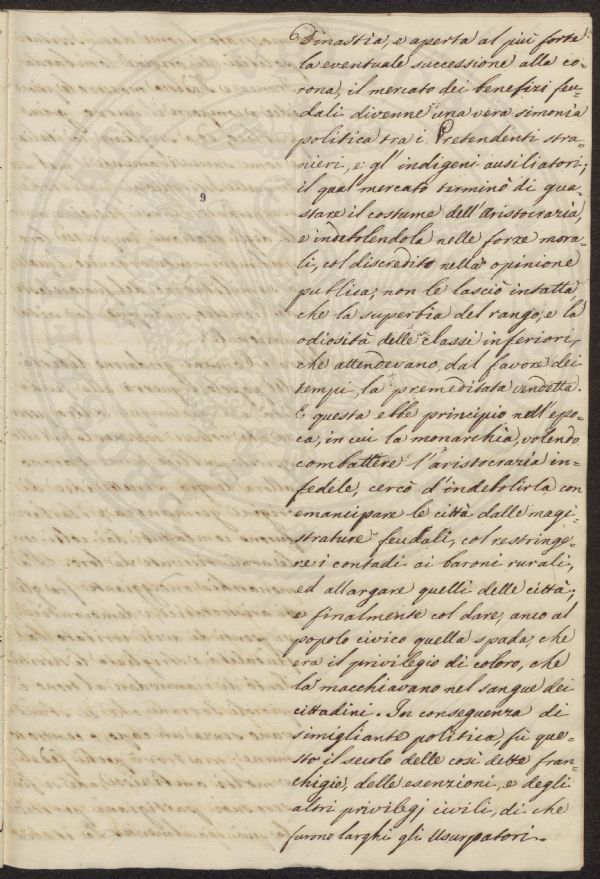 Dinastia, e aperta al più forte
la eventuale successione alla co-
rona, il mercato dei benefizi feu-
dali divenne una vera simonia
politica tra i Pretendenti stra-
nieri, e gl' indigeni ausiliatori;
il qual mercato terminò di gua-
stare il costume dell' Aristocrazia,
e indebolendola nelle forze mora-
li, col discredito nella opinione
publica, non le lasciò intatta,
che la superbia del rango, e la
odiosità delle classi inferiori,
che attendevano, dal favore dei
tempi, la premeditata vendetta.
E questa ebbe principio nell' epo-
ca, in cui la monarchia, volendo
combattere l' aristocrazia in-
fedele, cercò d' indebolirla con
emancipare le città dalle magi-
strature feudali, col restringe-
re i contadi ai baroni rurali,
ed allargare quelli delle città;
e finalmente col dare, anco al
popolo civico quella spada, che
era il privilegio di coloro, che
la macchiavano nel sangue dei
cittadini. In conseguenza di
simigliante politica, fù que-
sto il secolo delle così dette fran-
chigie, delle esenzioni, e degli
altri privilegj civili, di che
furono larghi gli Usurpatori.
9